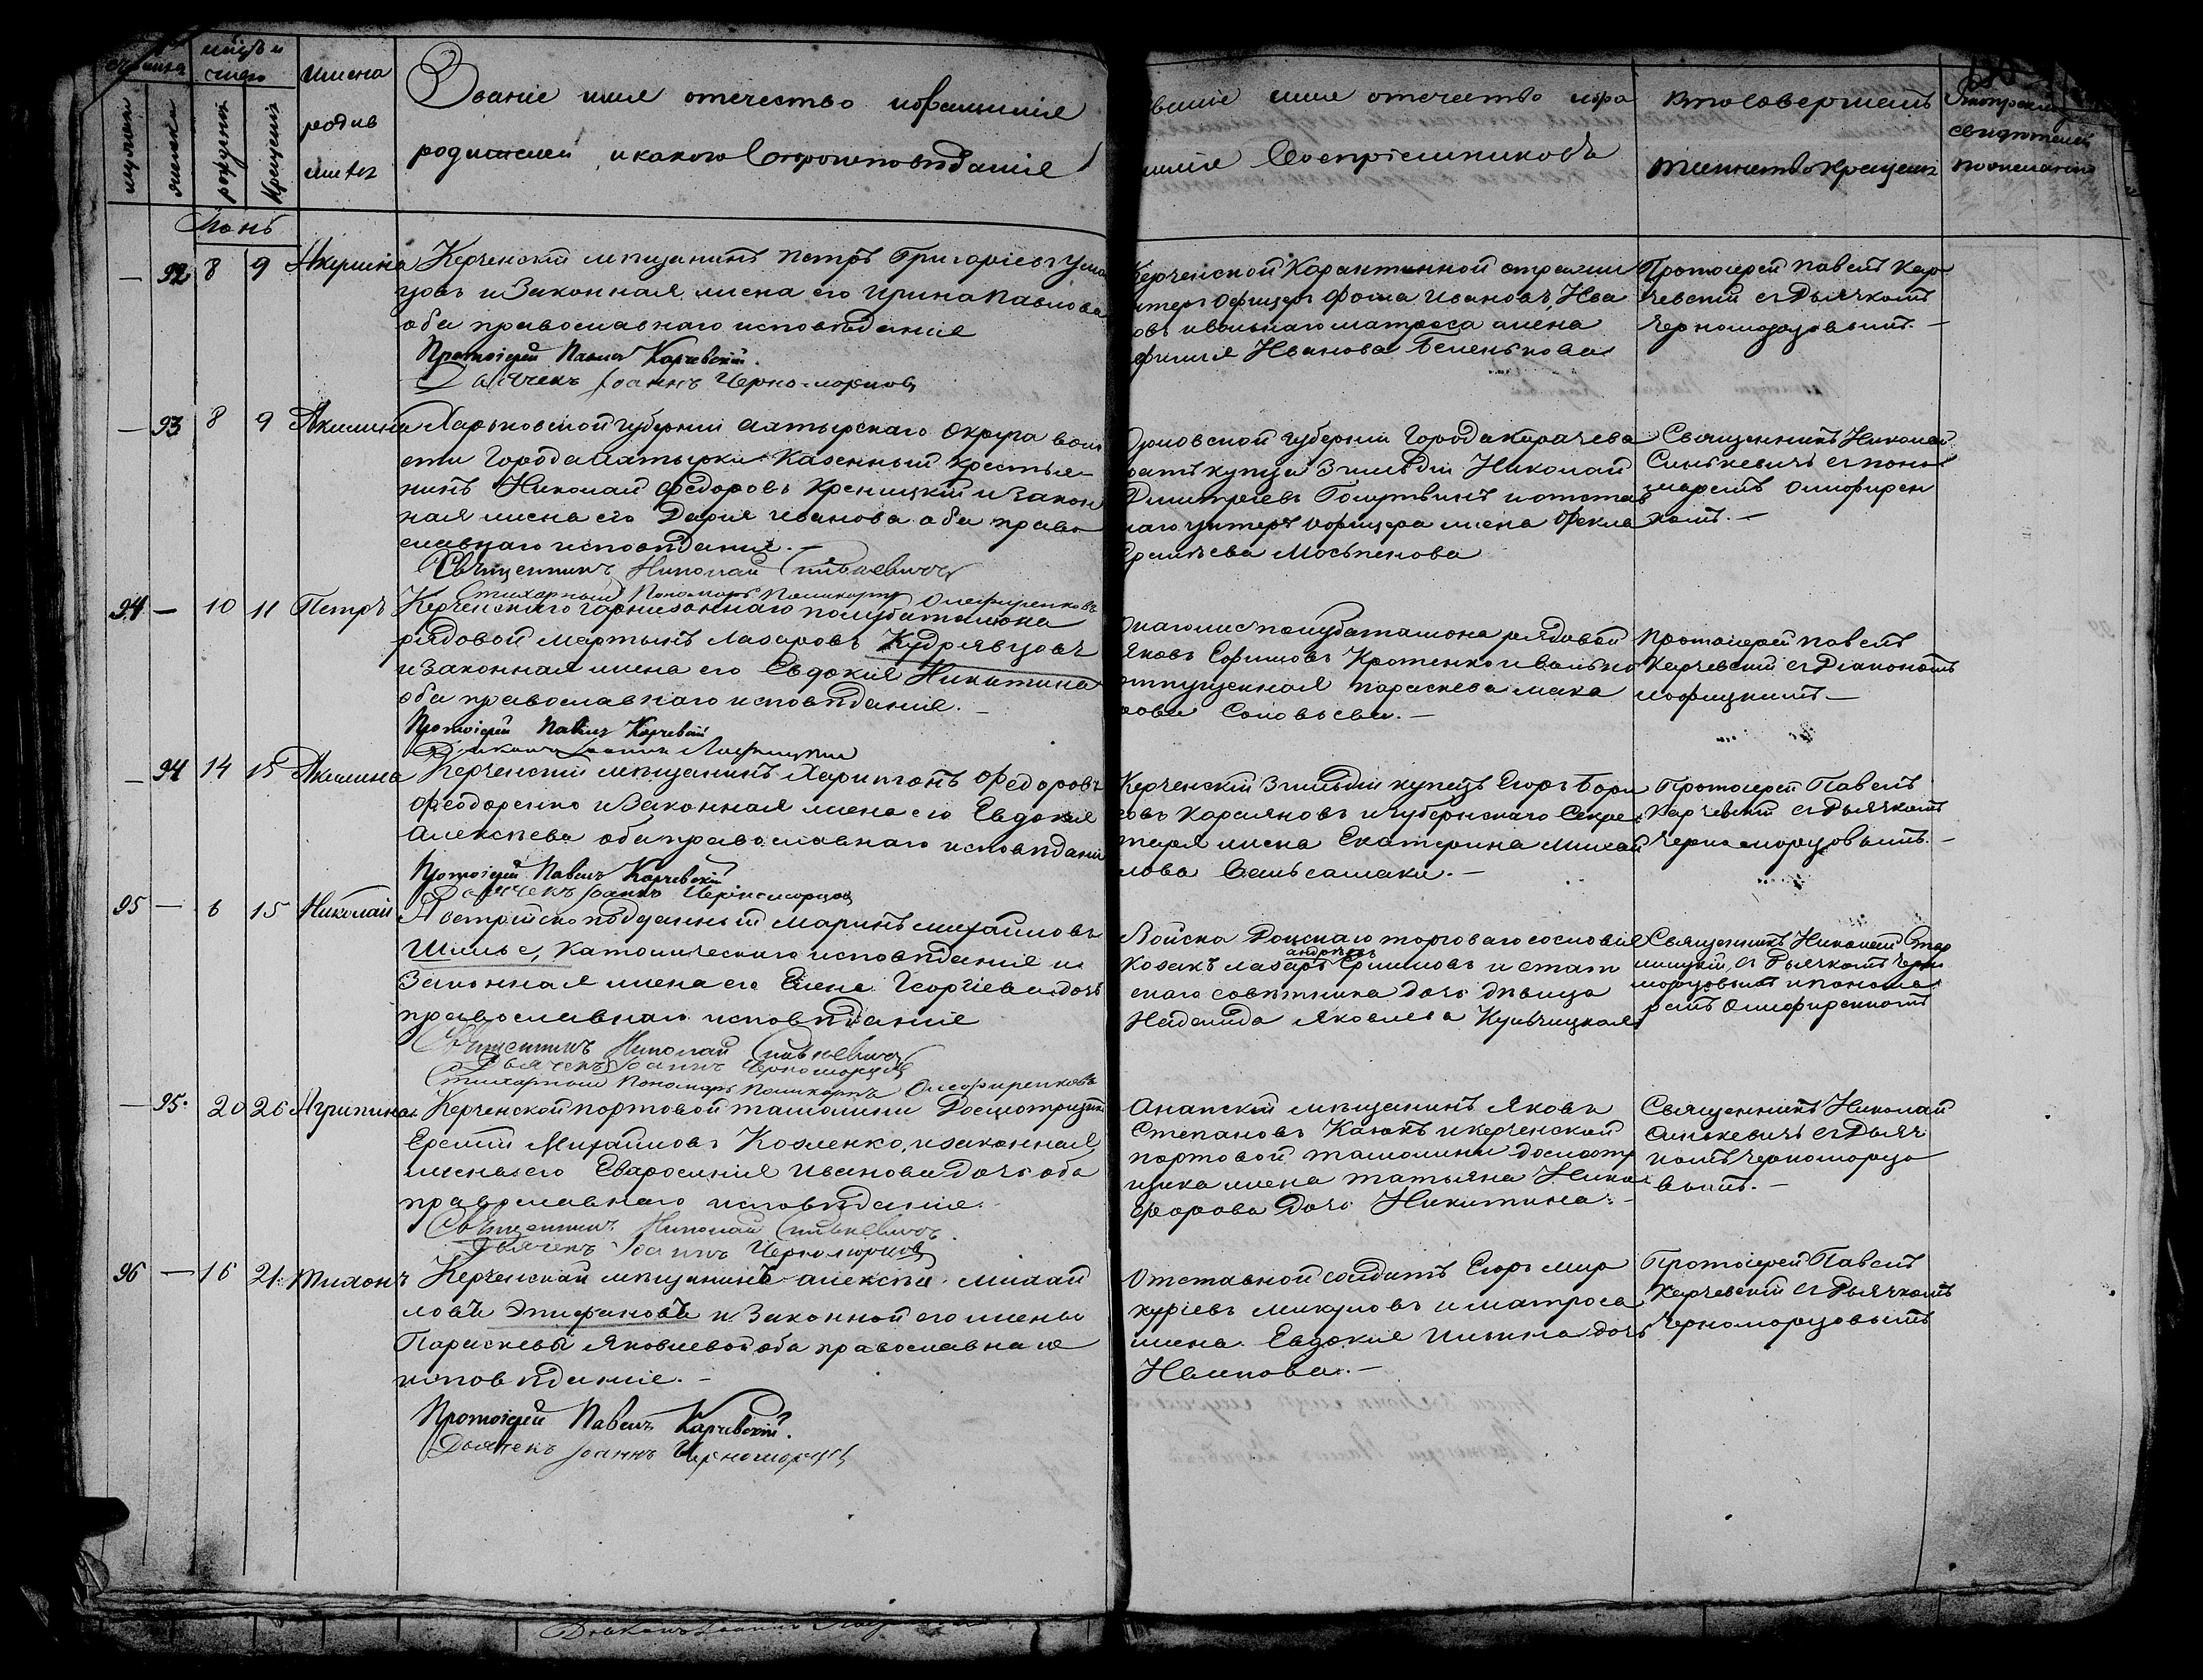 мѣсяцъ и
число
имена
родив
шихся
рожденія
Крещенія
Званіе имя отечество ифамилія
родителей икакого вѣроисповѣданія
званіе имя отечество ифа
милія Воспріемниковъ
Ктосовершалъ
таинствокрещенія
свидѣтелей
Іюнь
— 92 8 9 Акулина
Керченскій мѣщанинъ Петръ Григоріевъ
цовъ иЗаконная жена его Ирина Павлова
оба православнаго исповѣданія
Протоіерей Павелъ Карчевскій.
Дьячекъ Іоаннъ Черноморцовъ
Керченской Карантинной стражи
унтеръ Офицеръ Фома Ивановъ Ива
новъ ивольнаго матроса жена
Ивановa Беленькова
Протоіерей Павелъ Кар
чевскій съ Дьячкомъ
Черноморцовымъ. —
— 93 8 9 Акилина
Харьковской губерніи Ахтырскаго Округа
Города Ахтырки Казенный крестья
нинъ Николай Федоровъ Креницкій и закон
ная жена его Дарія Иванова оба право
славнаго исповѣданія. —
Священникъ Николай Синькевичъ
Стихарный Пономарь Поликарпъ Олефиренковъ
Орловской губерніи Города Карачева
братъ купца 3 гильдіи Николай
Дмитріевъ Голутвинъ и отстав
наго унтеръ офицера жена Фекла
Священникъ Николай
Синькевичъ съ поно
маремъ Олефирен
комъ. —
94 — 10 11 Петръ
Керченскаго гарнизоннаго полубаталіона
рядовой Мартынъ Лазаровъ Кудрявцовъ
и Законная жена его Евдокія Никитина
оба православнаго исповѣданія. —
Протоіерей Павелъ Карчевскій
Діаконъ Іоаннъ Лофицкій
Онагожъ полубаталіона рядовой
Яковъ Ефимовъ Кротенко ивольно
отпущенная Параскева Мака
рова Соловьева. —
Протоіерей Павелъ
Карчевскій съ Діакономъ
Лофицкимъ —
— 94 14 15 Акилина
Керченскій мѣщанинъ Харитонъ Федоровъ
Феодоренко и Законная жена его Евдокія
Алексѣева оба православнаго исповѣданія
Протоіерей Павелъ Карчевскій
Дьячекъ Іоаннъ Черноморцовъ
Керченскій 3 гильдіи купецъ Егоръ Бори
совъ Хараяновъ и губернскаго Секре
таря жена Екатерина Михай
лова —
Протоіерей Павелъ
Карчевскій съ Дьячкомъ
Черноморцовымъ. —
95 — 6 15 Николай
Австрійскоподданный Маринъ Михайловъ
Шилье, Католическаго исповѣданія и
Законная жена его Елена Георгіева дочь
православнаго исповѣданія
Священникъ Николай Синькевичъ
Дьячекъ Іоаннъ Черноморцовъ
Стихарный Пономарь Поликарпъ Олефиренковъ
Войска Донскаго торговаго сословія
андреевъ
Козакъ Лазарь Ефимовъ и стат
скаго совѣтника дочь дѣвица
Надежда Яковлева Кульчицкая
Священникъ Николай
съ Дьячкомъ Черно
морцовымъ и понома
ремъ Олефиренкомъ
— 95. 20 26 Агрипина
Керченской портовой таможни Досмотрщикъ
Ерелій Михайловъ Козленко, изаконная
жена его Евфросинія Иванова дочь оба
православнаго исповѣданія.
Священникъ Николай Синькевичъ.
Дьячекъ Іоаннъ Черноморцовъ
Анапскій мѣщанинъ Яковъ
Степановъ Каюкъ и керченской
портовой таможни досмотр
щика жена Татьяна Ники
форова дочь Никитина. —
Священникъ Николай
Синькевичъ съ Дьяч
комъ Черноморцо
вымъ. —
96 — 16 21. Тихонъ
Керченскій мѣщанинъ Алексѣй Михай
ловъ Эпифановъ и Законной его жены
Параскевы Яковлевой оба православнаго
исповѣданія. —
Протоіерей Павелъ Карчевскій.
Дьячекъ Іоаннъ Черноморцовъ
Отставной солдатъ Егоръ Мер
куріевъ Микуловъ и матроса
жена Евдокія Ильина дочь
Иванова. —
Протоіерей Павелъ
Карчевскій съ Дьячкомъ
Черноморцовымъ